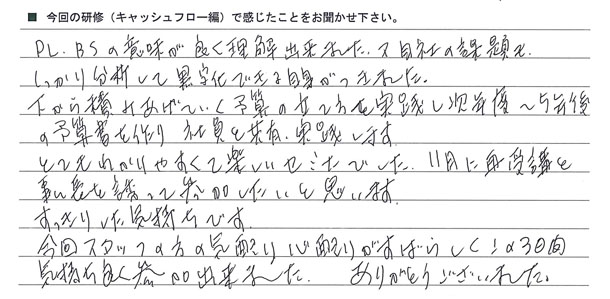 ■ 今回の研修（キャッシュフロー編）で感じたことをお聞かせ下さい。
PL. BSの意味が良く理解出来ました。又自社の課題を
しっかり分析して黒字化できる自身がつきました。
下から積みあげていく予算の立て方を実践し次年度〜5年後
の予算書を作り 社員と共有、実践します
とてもわかりやすくて楽しいセミナーでした。11月に再受講を
誘って参加したいと思います。
すっきりした気持ちです。
今回スタッフの方の気配り心配りがすばらしく この3日間
気持ち良く参加出来ました。 ありがとうございました。